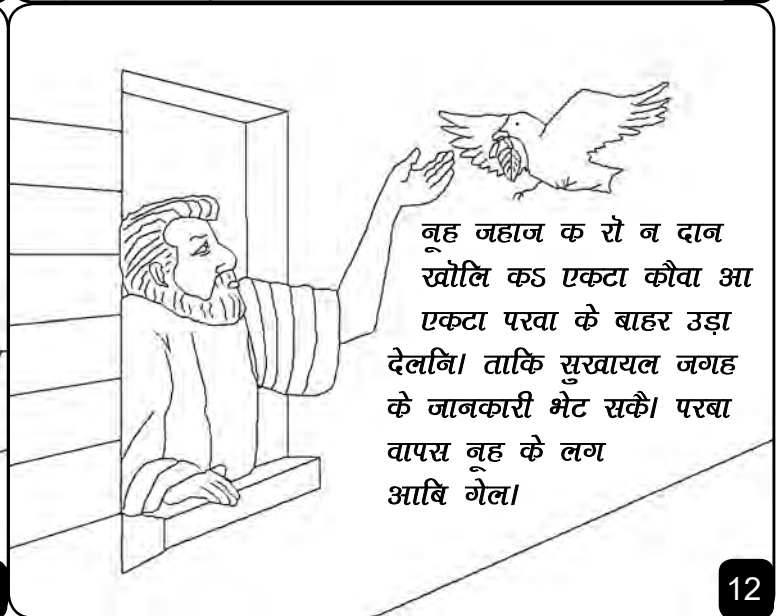 नूह जहाज क रॊ न दान
खॊलि कऽ एकटा कौवा आ
एकटा परवा के बाहर उड़ा
देलनि। ताकि सुखायल जगह
के जानकारी भेट सकै। परबा
वापस नूह के लग
आबि गेल।
12